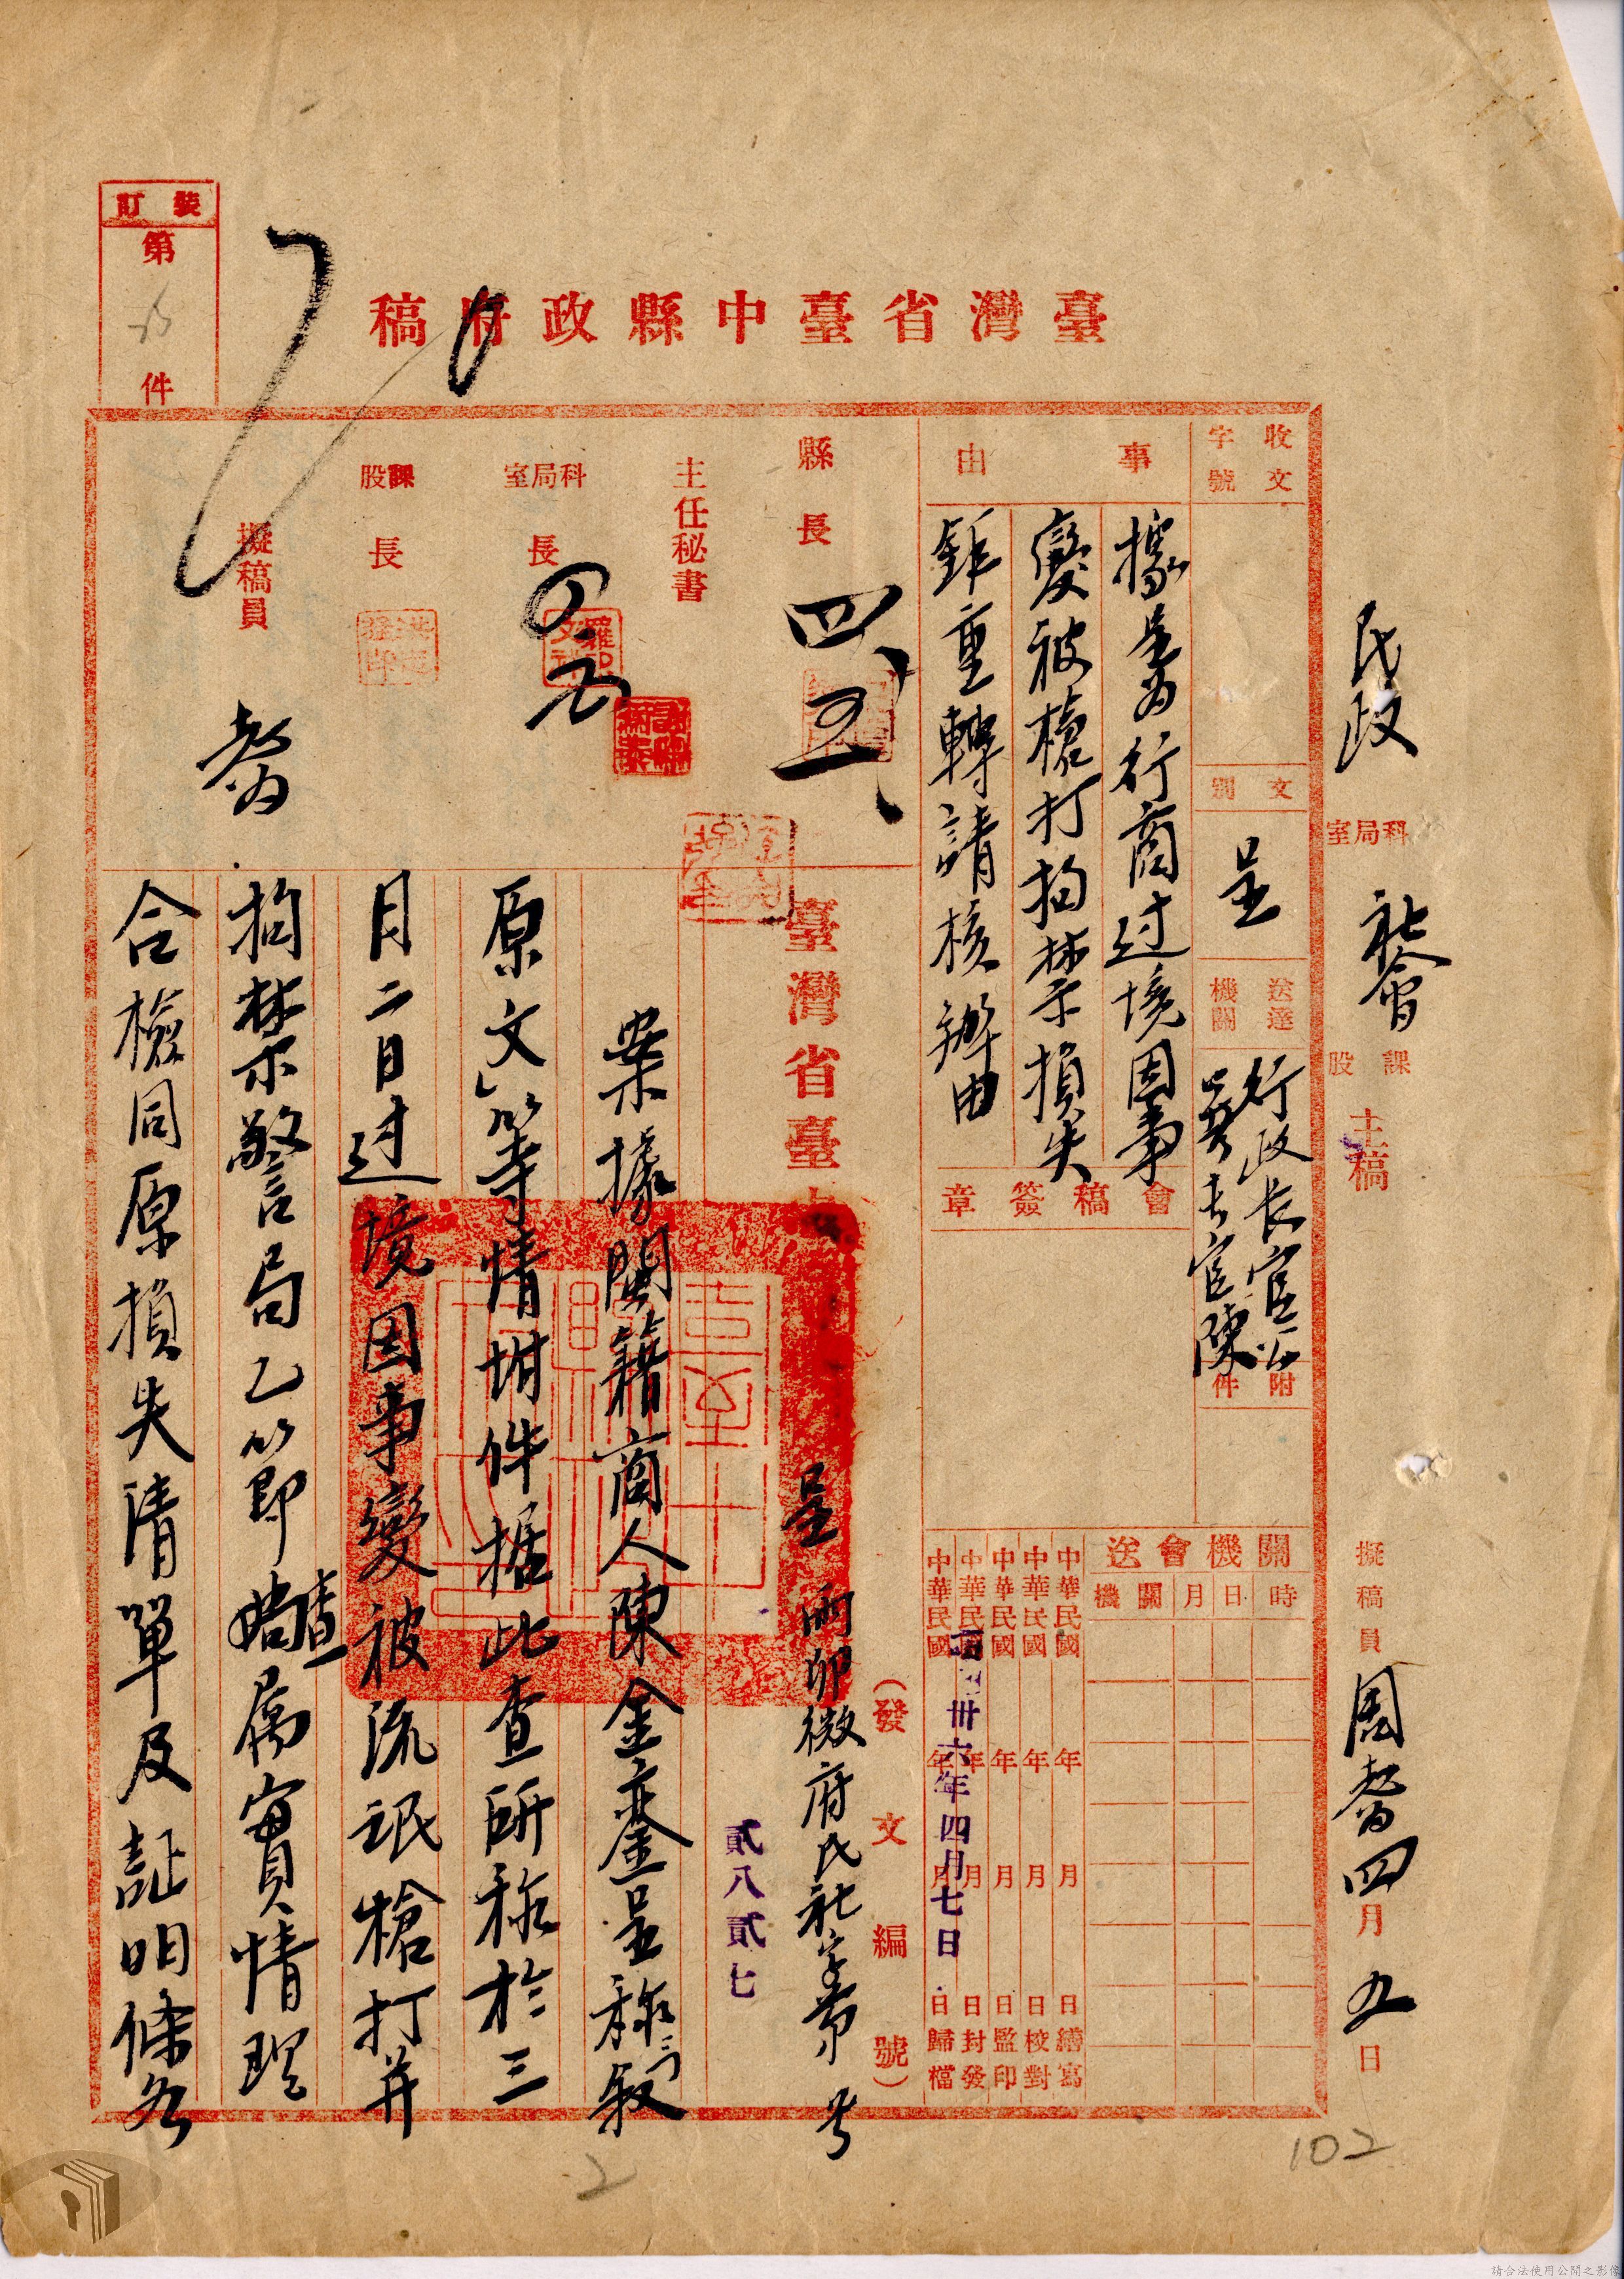 臺灣省臺中縣政府稿
裝訂
第
件
民政
科局室
社會
課股
主稿
擬稿員
周
四月九日
收文
字號
文別
呈
送達機關
行政長官公署
長官陳
附件
事由
據呈為行商过境因事
變被槍打拘禁損失
鉅重轉請核辦由
會稿簽章
關機會送
時 日 月 關機
中華民國 年 月 日繕寫
中華民國 年 月 日校對
中華民國 年 月 日監印
中華民國 年 月 日封發
中華民國 年 月 日歸檔
卅六年四月七日
縣長
主任秘書
科局室長
課股長
擬稿員
(發文編號)
臺灣省臺
呈
卯微府民社字第 号
貳八貳七
案據閩籍商人陳金鑾呈称(叙
原文)等情坿件据此查所称於三
月二日过境因事變被流氓槍打并
拘禁警局乙節
查
屬實情理
合檢同原損失清單及証明條各
102
2
請合法使用公開之影像